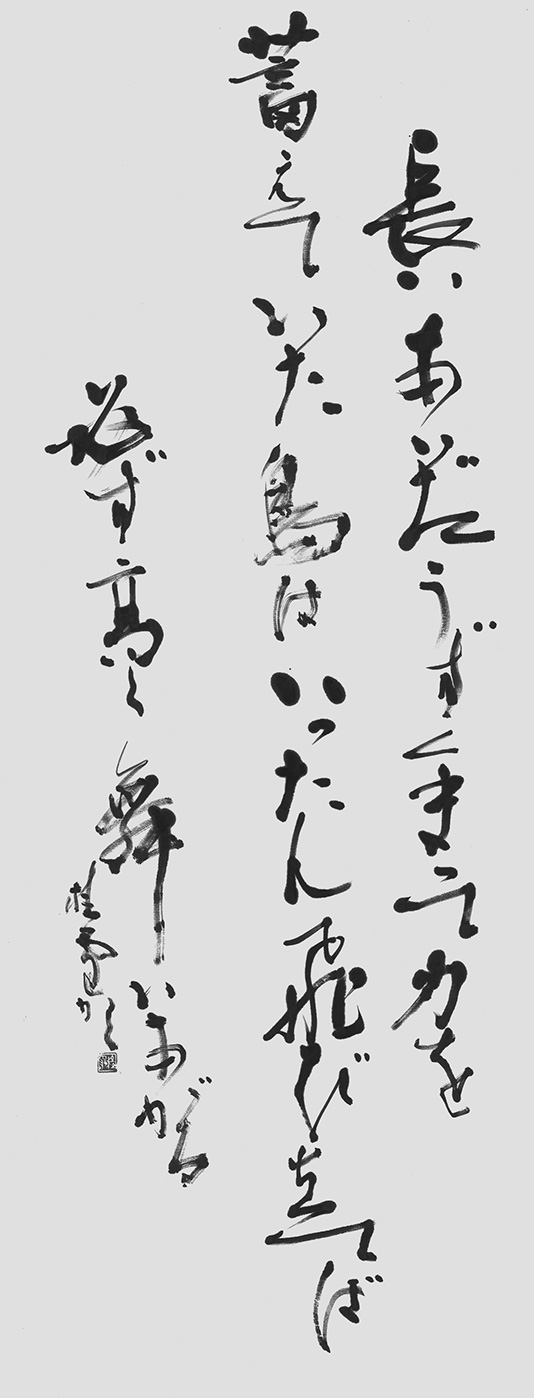 長いあいだうずくまって力を
蓄えていた鳥はいったん飛び立てば
必ず高く舞いあがる